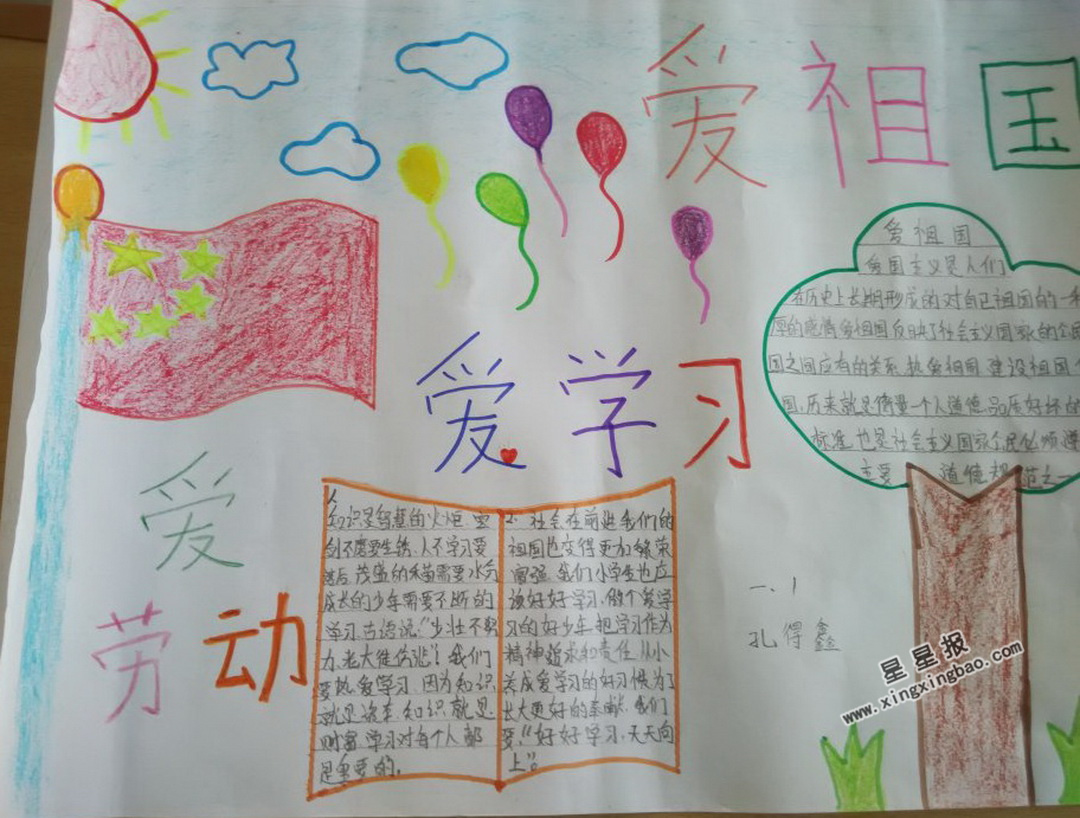 爱祖国
爱学习
爱
劳动
爱祖国
爱国主义是人们
在历史上长期形成的对自己祖国的一
厚的感情爱祖国反映了社会主义国家的公民
国之间应有的关系.热爱祖国.建设祖国
国.历来就是衡量一个人道德品质好坏的
标准.也是社会主义国家公民必须遵
主要 道德规范之一
1.
知识是智慧的火炬 宝
剑不磨要生锈.人不学习要
落后.茂盛的禾苗需要水分
成长的少年需要不断的
学习.古语说:“少壮不努
力.老大徒伤悲”!我们
要热爱学习.因为知识
就是 知识就是
财富.学习对每个人都
是重要的。
2.社会在前进我们的
祖国也变得更加繁荣
富强.我们小学生也应
该好好学习.做个爱学
习的好少年.把学习作为
精神追求和责任.从小
养成爱学习的好习惯.为了
长大更好的奉献.我们
要“好好学习.天天向
上”。
一.1
孔得鑫
星星报
www.xingxingbao.com